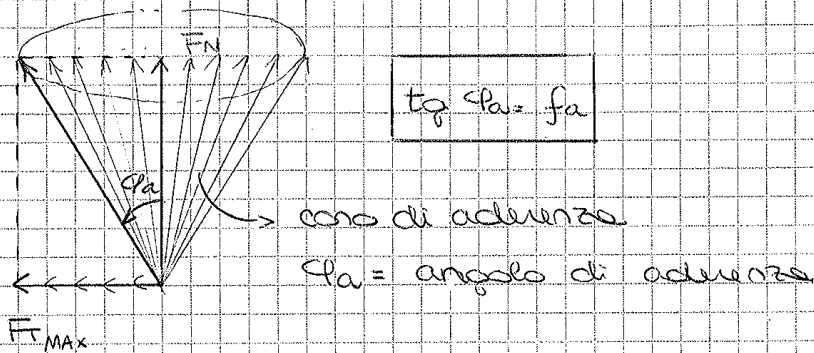 FN
tg φa = fa
φa
cono di aderenza
φa = angolo di aderenza
FT MAX